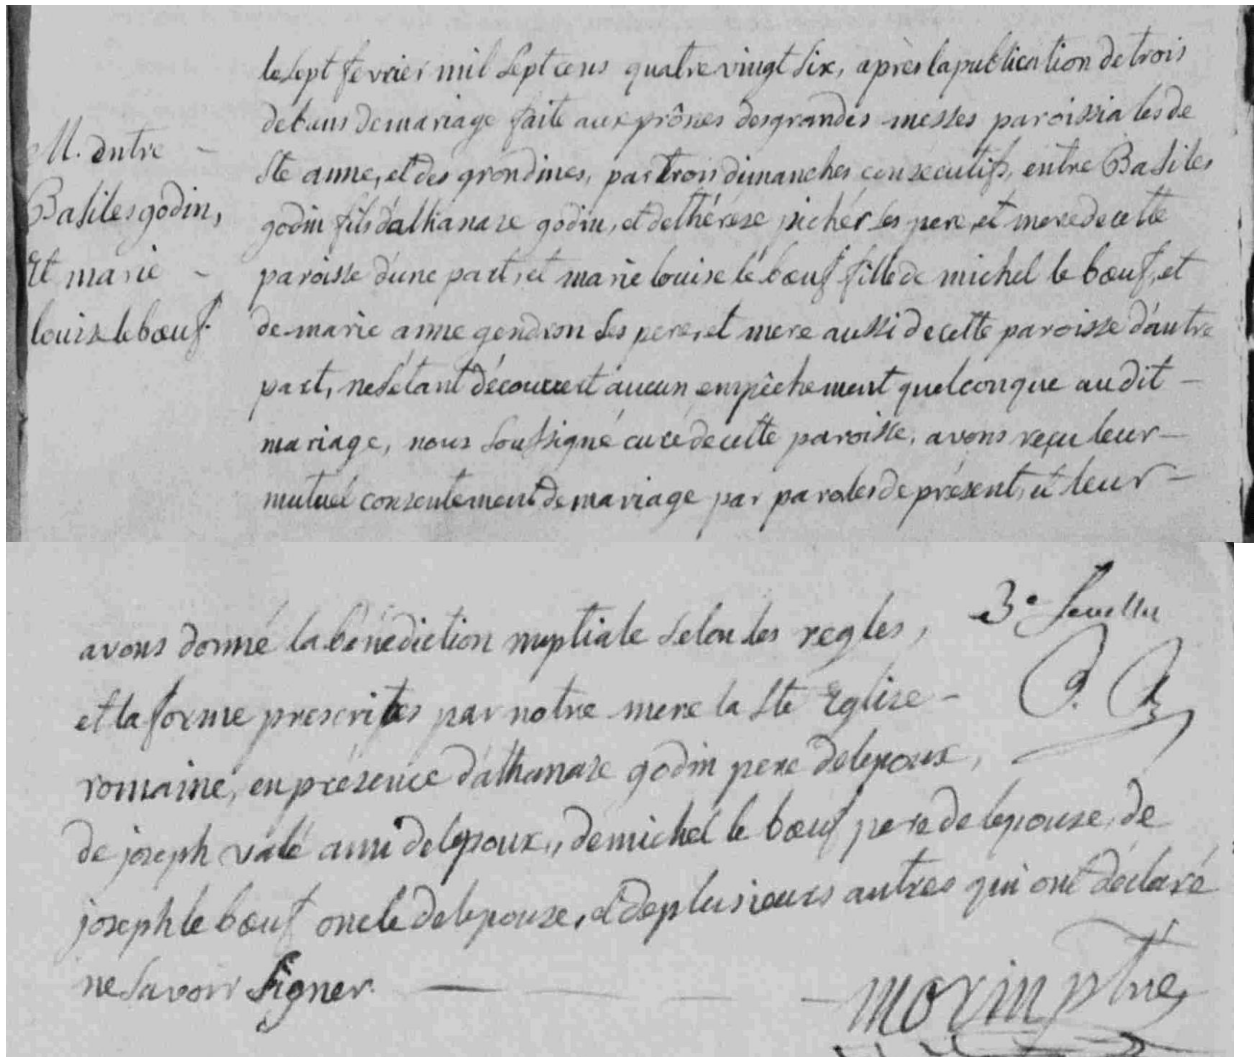 M. entre
Basiles godin,
Et marie
louise le bœuf.
le sept fevrier mil sept cens quatre vingt six, après la publication de trois
de bans de mariage faite aux prônes des grandes messes paroissiales de
Ste anne, et des grondines, par trois dimanches consecutifs, entre Basiles
godin fils d'athanaze godin, et de thérèze picher ses pere, et mere de cette
paroisse d'une part, et marie louise le bœuf fille de michel le bœuf, et
de marie anne gendron ses pere, et mere aussi de cette paroisse d'autre
part, ne s'étant découvert aucun empêchement quelconque au dit
mariage, nous soussigné curé de cette paroisse, avons reçu leur
mutuel consentement de mariage par paroles de présent, et leur
3e feuillet
avons donné la bénédiction nuptiale selon les regles,
et la forme prescrites par notre mere la Ste Eglize
romaine, en présence d'athanaze godin pere de lepoux,
de joseph valé ami de lepoux, de michel le bœuf pere de lepouze, de
joseph le bœuf oncle de lepouze, et de plusieurs autres qui ont déclaré
ne savoir signer.
morin ptre